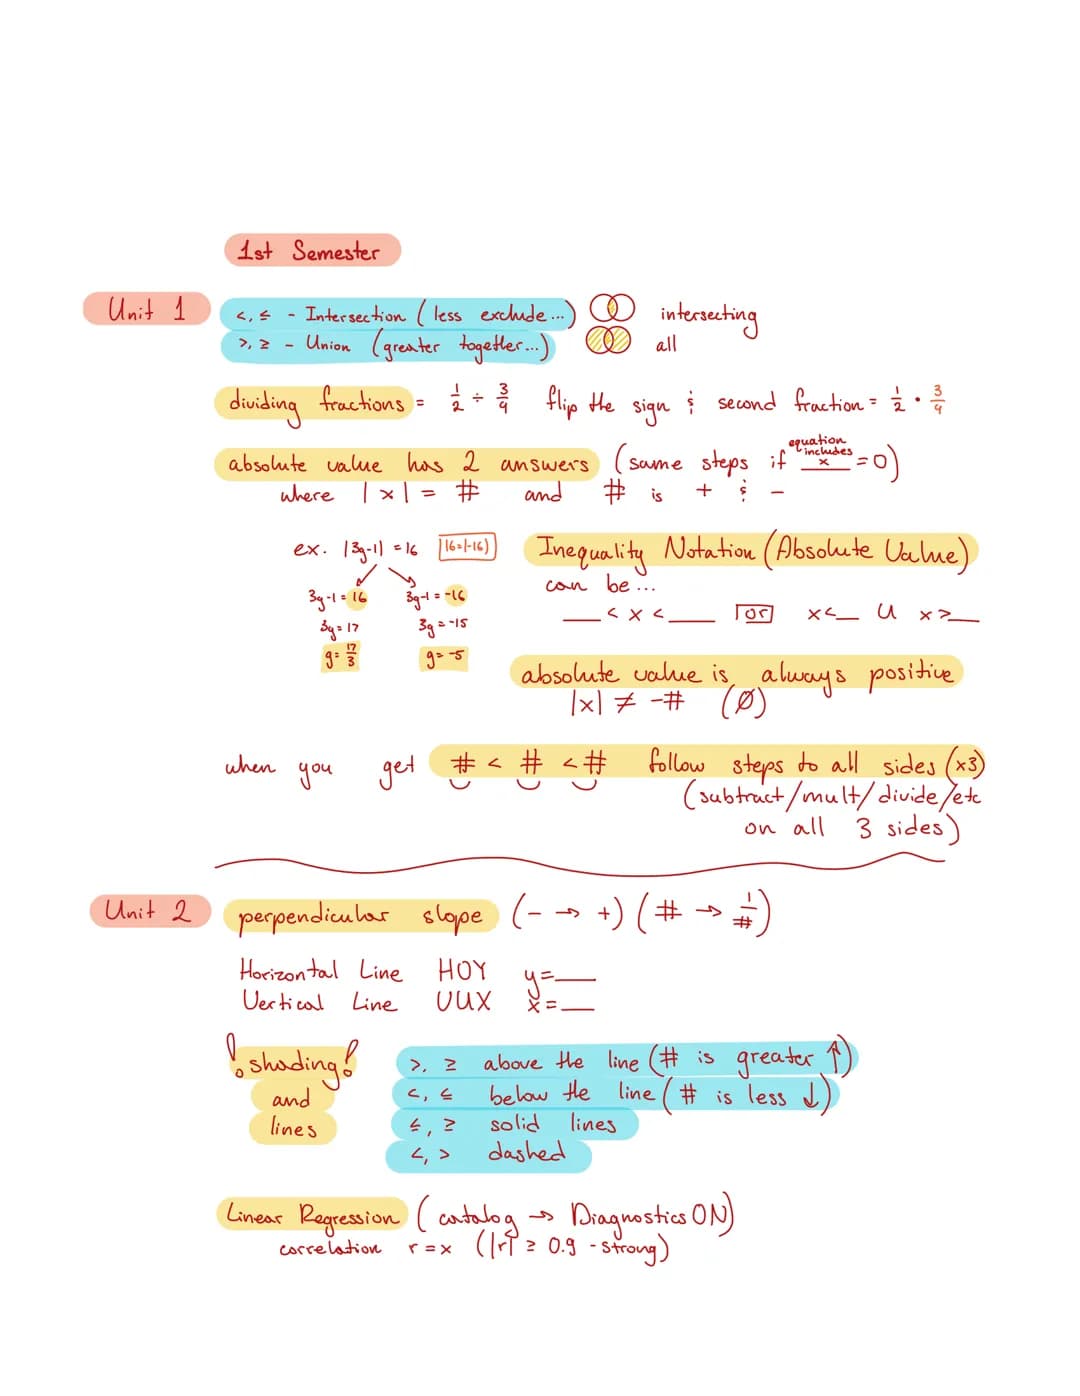 1st Semester
Unit 1
<, ≤ - Intersection (less exclude...) intersecting
>, ≥ - Union (greater together...) all
dividing fractions = 1/2 ÷ 3/4 flip the sign & second fraction = 1/2 · 3/4
absolute value has 2 answers (same steps if equation includes x = 0)
where |x| = # and # is + & -
ex. |3g-1| = 16 |16=|-16)
3g-1 = 16 3g-1 = -16
3g = 17 3g = -15
g = 17/3 g = -5
Inequality Notation (Absolute Value)
can be...
__ < x < __ or x < __ U x > __
absolute value is always positive
|x| ≠ -# (Ø)
when you get # < # < # follow steps to all sides (x3)
(subtract/mult/divide/etc
on all 3 sides)
Unit 2
perpendicular slope (- → +) (# → 1/#)
Horizontal Line HOY y = __
Vertical Line VUX x = __
! shading!
and
lines
>, ≥ above the line (# is greater ↑)
<, ≤ below the line (# is less ↓)
≤, ≥ solid lines
<, > dashed
Linear Regression (catalog → Diagnostics ON)
correlation r = x (|r| ≥ 0.9 - strong)